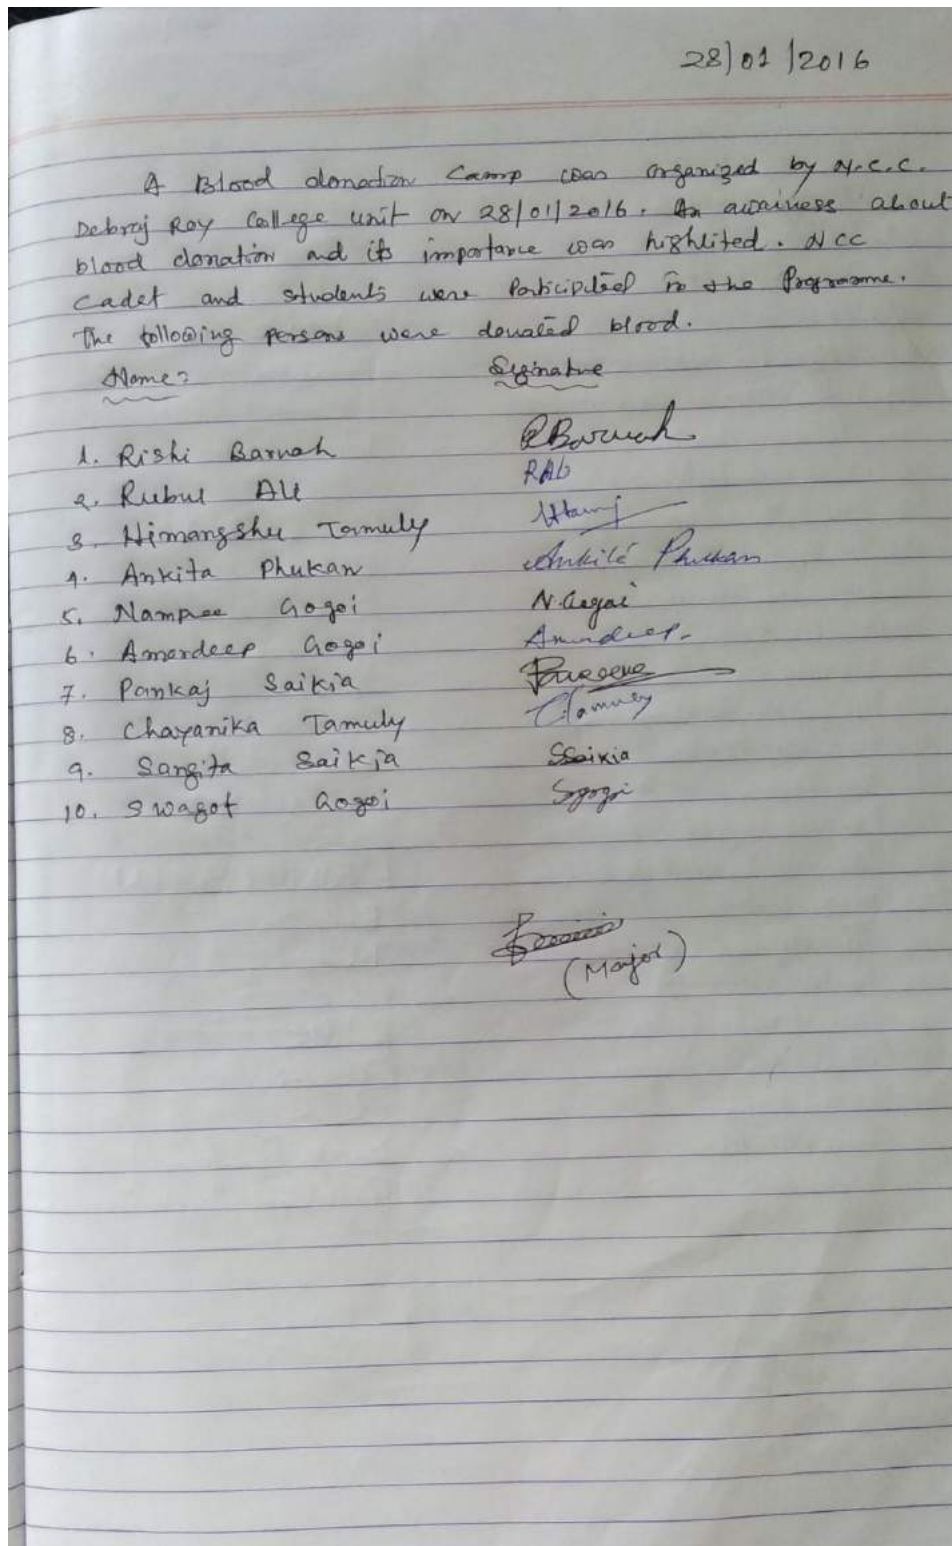 28/01/2016
A Blood donation Camp was organized by N.C.C.
Debraj Roy College unit on 28/01/2016. An awainess about
blood donation and its importance was highlited. NCC
Cadet and students were Participated in the Programme.
The following persons were donated blood.
Name: Signature
1. Rishi Baruah RBaruah
2. Rubul Ali RAli
3. Himangshu Tamuly
4. Ankita Phukan Ankita Phukan
5. Nampee Gogoi N.Gogoi
6. Amardeep Gogoi Amardeep
7. Pankaj Saikia
8. Chayanika Tamuly CTamuly
9. Sangita Saikia SSaikia
10. Swagot Gogoi Sgogoi
(Major)